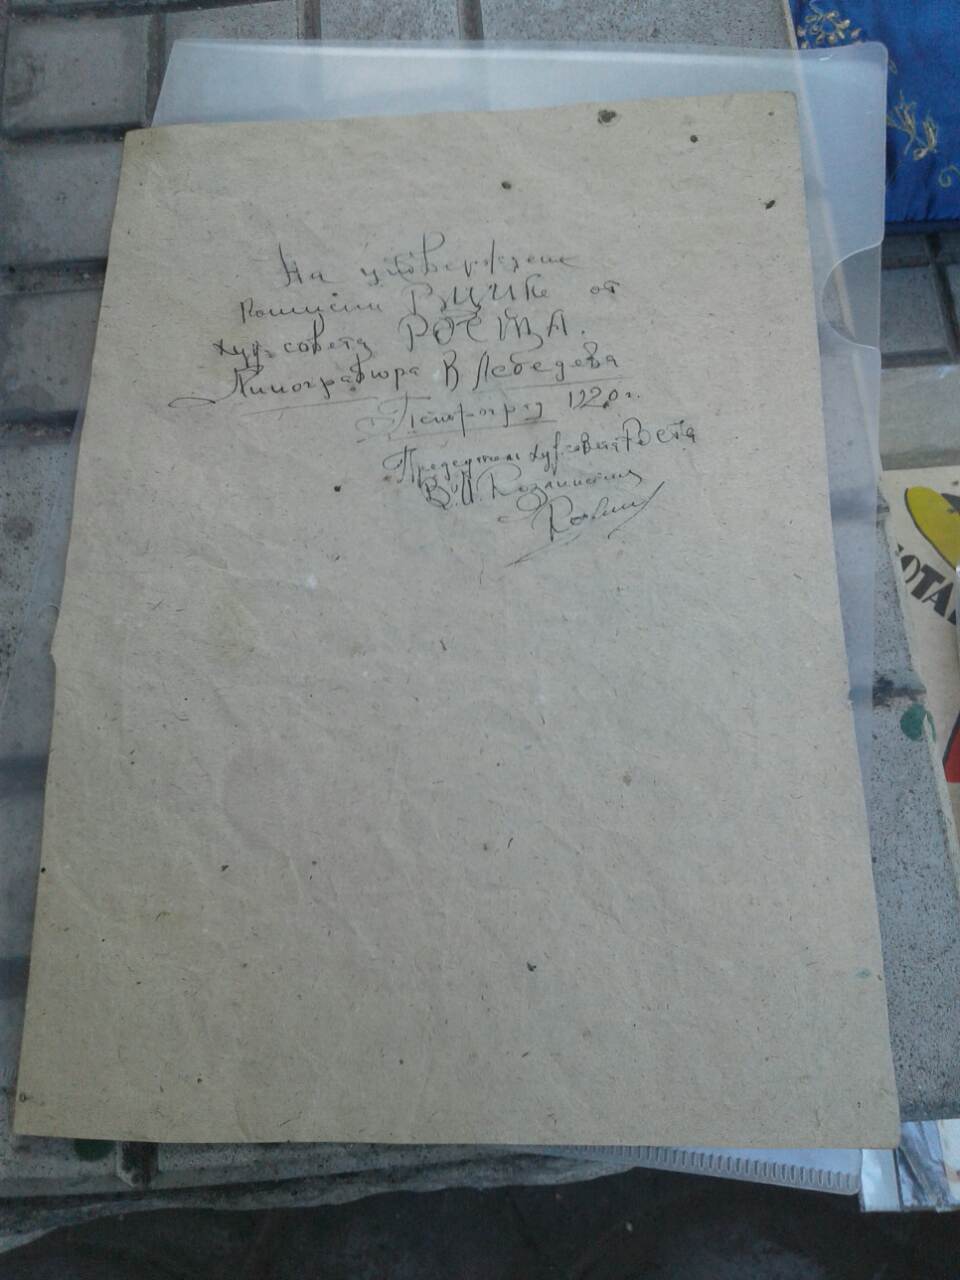 На утверждение
комиссии ВЦИКа от
худ. совета РОСТА.
Линогравюра В Лебедева
Петроград 1920 г.
Председатель худ. совета РОСТА
В. И. Козлинский
ОТА